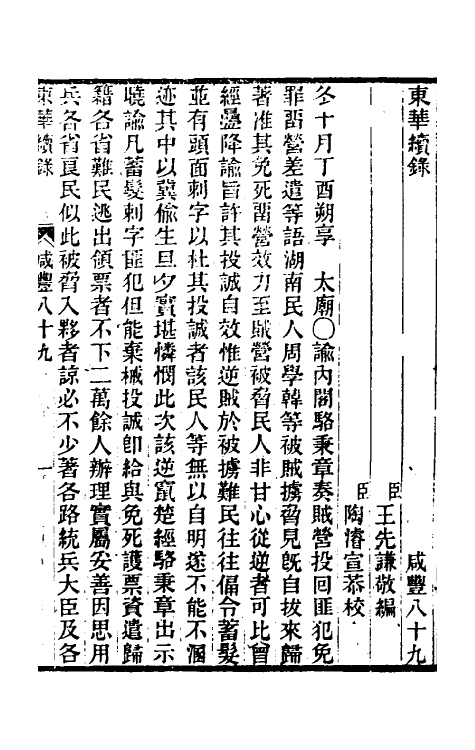 東華續錄　咸豐八十九
臣王先謙敬編
臣陶濬宣恭校
冬十月丁酉朔享　太廟〇諭內閣駱秉章奏賊營投回匪犯免
罪留營差遣等語湖南民人周學韓等被賊擄脅見旣自拔來歸
著准其免死留營效力至賊營被脅民人非甘心從逆者可比曾
經疊降諭旨許其投誠自效惟逆賊於被擄難民往往偪令蓄髮
並有頭面刺字以杜其投誠者該民人等無以自明遂不能不溷
迹其中以冀偷生旦夕實堪憐憫此次該逆竄楚經駱秉章出示
曉諭凡蓄髮刺字匪犯但能棄械投誠卽給與免死護票資遣歸
籍各省難民逃出領票者不下二萬餘人辦理實屬妥善因思用
兵各省良民似此被脅入夥者諒必不少著各路統兵大臣及各
東華續錄　咸豐八十九　一